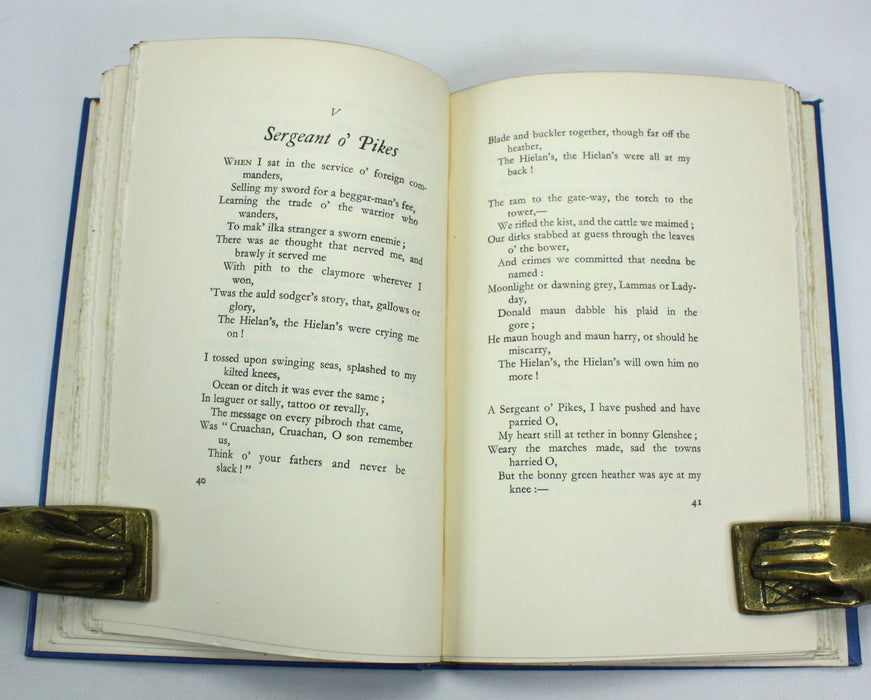 V
Sergeant o' Pikes
WHEN I sat in the service o' foreign com-
manders,
Selling my sword for a beggar-man's fee,
Learning the trade o' the warrior who
wanders,
To mak' ilka stranger a sworn enemie;
There was ae thought that nerved me, and
brawly it served me
With pith to the claymore wherever I
won,
'Twas the auld sodger's story, that, gallows or
glory,
The Hielan's, the Hielan's were crying me
on!
I tossed upon swinging seas, splashed to my
kilted knees,
Ocean or ditch it was ever the same;
In leaguer or sally, tattoo or revally,
The message on every pibroch that came,
Was "Cruachan, Cruachan, O son remember
us,
Think o' your fathers and never be
slack!"
40
Blade and buckler together, though far off the
heather,
The Hielan's, the Hielan's were all at my
back!
The ram to the gate-way, the torch to the
tower,—
We rifled the kist, and the cattle we maimed;
Our dirks stabbed at guess through the leaves
o' the bower,
And crimes we committed that needna be
named:
Moonlight or dawning grey, Lammas or Lady-
day,
Donald maun dabble his plaid in the
gore;
He maun hough and maun harry, or should he
miscarry,
The Hielan's, the Hielan's will own him no
more!
A Sergeant o' Pikes, I have pushed and have
parried O,
My heart still at tether in bonny Glenshee;
Weary the marches made, sad the towns
harried O,
But the bonny green heather was aye at my
knee:—
41